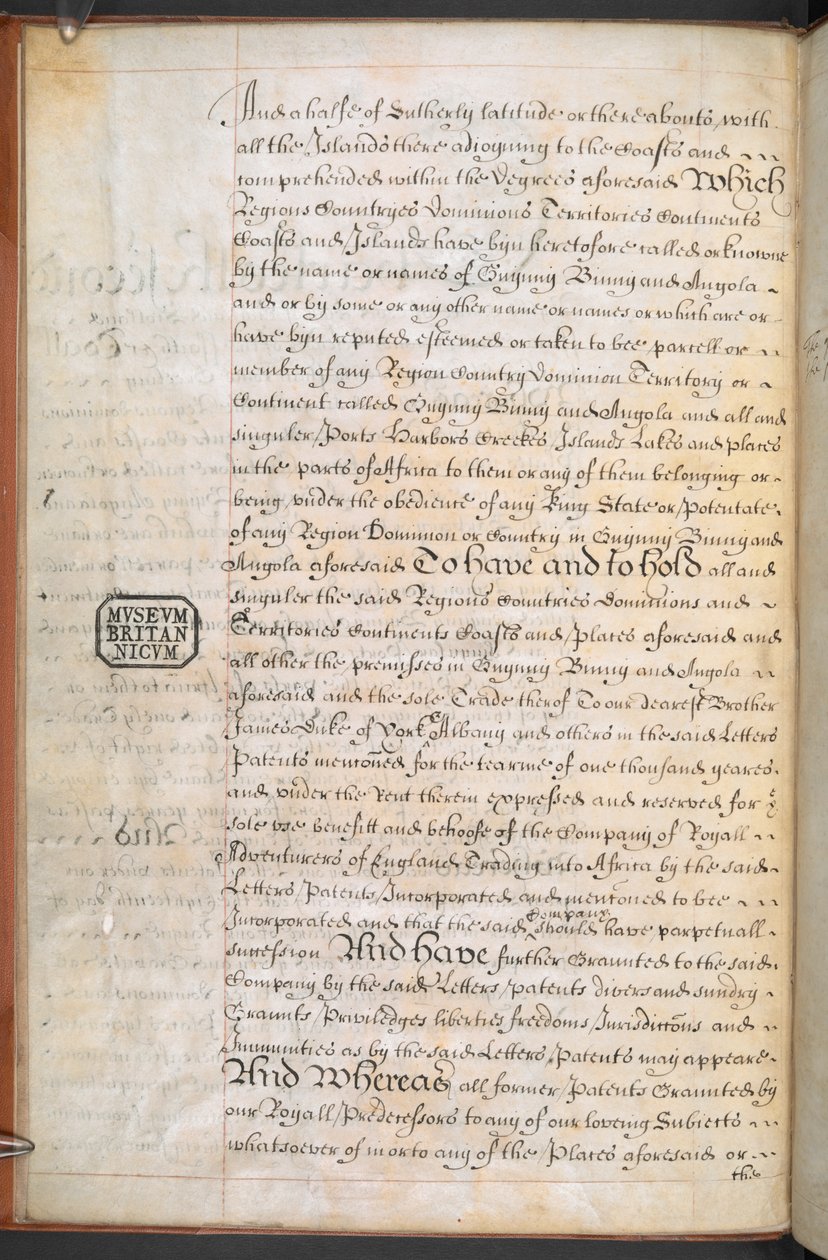 And a halfe of Sutherly latitude or there abouts with
all the Islands there adioyning to the Coasts and
comprehended within the Degrees aforesaid Which
Regions Countryes Dominions Territories Continents
Coasts and Islands have byn heretofore called or knowne
by the name or names of Guynny Binny and Angola
and or by some or any other name or names or which are or
have byn reputed esteemed or taken to bee parcell or
member of any Region Country Dominion Territory or
Continent called Guynny Binny and Angola and all and
singuler Ports Harbors Creekes Islands Lakes and places
in the parts of Africa to them or any of them belonging or
being under the obedience of any King State or Potentate
of any Region Dominion or Country in Guynny Binny and
Angola aforesaid To have and to hold all and
singuler the said Regions Countries Dominions and
MVSEVM
BRITAN
NICVM
Territories Continents Coasts and Places aforesaid and
all other the premisses in Guynny Binny and Angola
aforesaid and the sole Trade therof To our dearest Brother
James Duke of York & Albany and others in the said Letters
Patents menconed for the tearme of one thousand yeares
and vnder the Rent therein expressed and reserved for
sole vse benefitt and behoofe of the Company of Royall
Adventurers of England Trading into Africa by the said
Letters Patents Incorporated and menconed to bee
Incorporated and that the said Company should have perpetuall
succession And have further Graunted to the said
Company by the said Letters Patents divers and sundry
Graunts Priviledges liberties freedoms Jurisdiccons and
Immunities as by the said Letters Patents may appeare
And Whereas all former Patents Graunted by
our Royall Predecessors to any of our loveing Subiects
whatsoever of in or to any of the Places aforesaid or
the